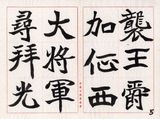 襲王爵
加仾西
大將軍
尋拜光
5